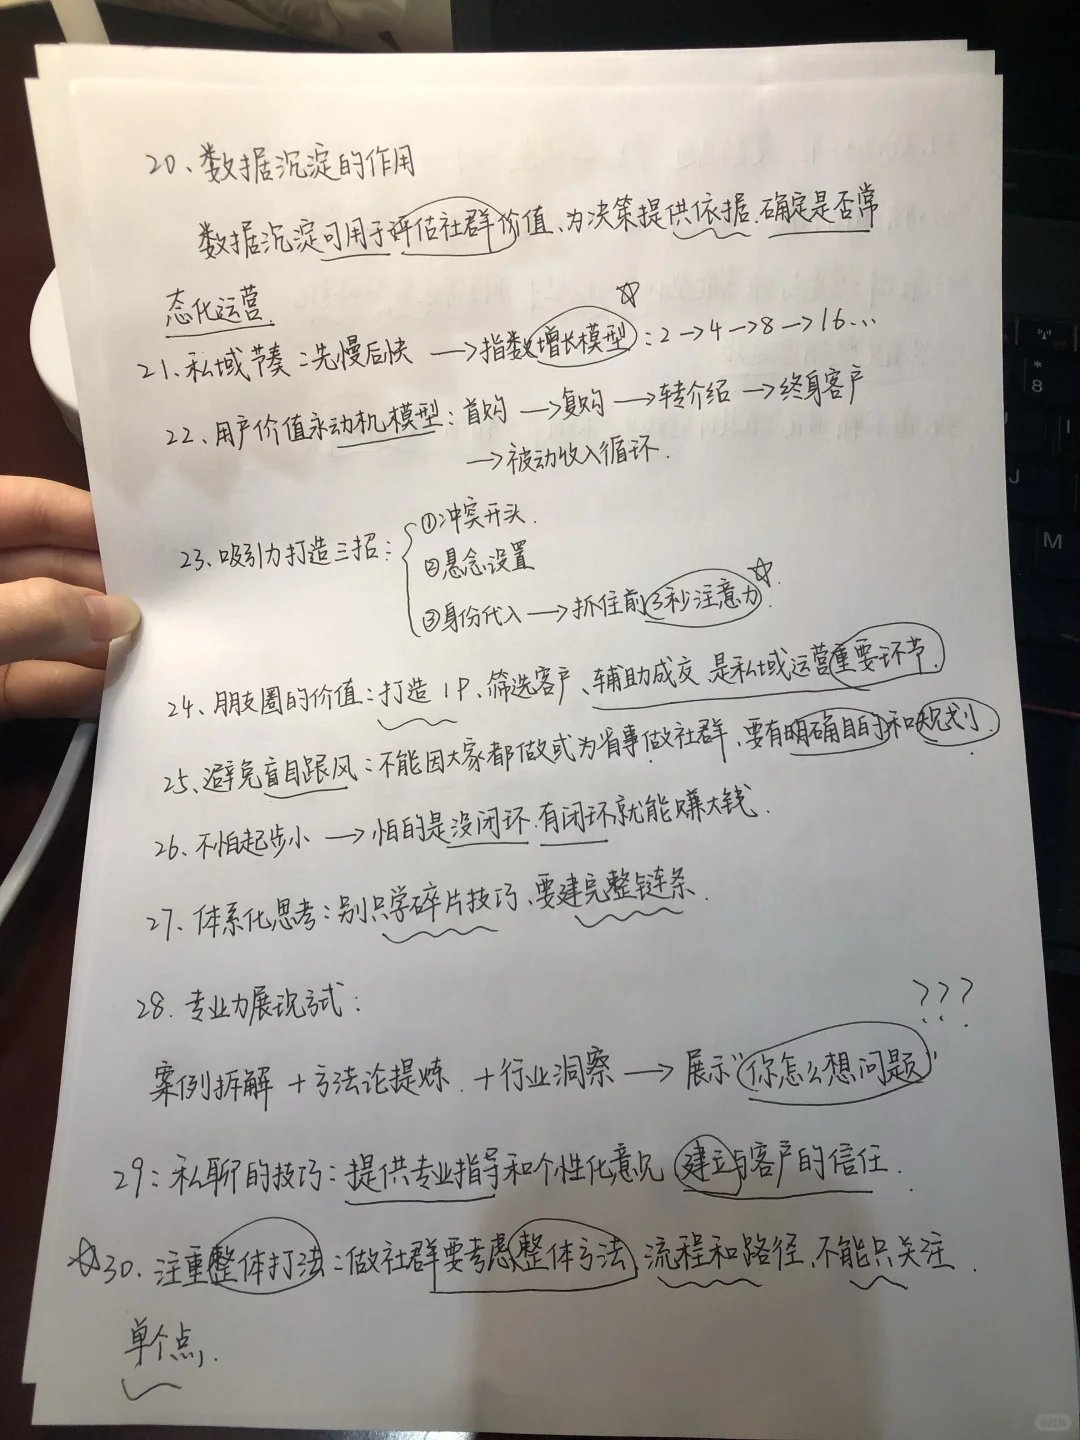 20、数据沉淀的作用
数据沉淀可用于评估社群价值、为决策提供依据.确定是否常
态化运营.
21、私域节奏:先慢后快 →指数增长模型:2→4→8→16…
22、用户价值永动机模型:首购→复购→转介绍→终身客户
→被动收入循环.
23、吸引力打造三招:
①冲突开头.
②悬念设置
③身份代入→抓住前3秒注意力.
24、朋友圈的价值:打造IP、筛选客户、辅助成交.是私域运营重要环节.
25、避免盲目跟风:不能因大家都做或为省事做社群、要有明确目的和规划.
26、不怕起步小→怕的是没闭环.有闭环就能赚大钱.
27、体系化思考:别只学碎片技巧、要建完整链条.
28.专业力展现方式:
???
案例拆解+方法论提炼.+行业洞察→展示"你怎么想问题"
29:私聊的技巧:提供专业指导和个性化意见 建立与客户的信任.
☆30、注重整体打法:做社群要考虑整体方法.流程和路径、不能只关注.
单个点,.
小红书